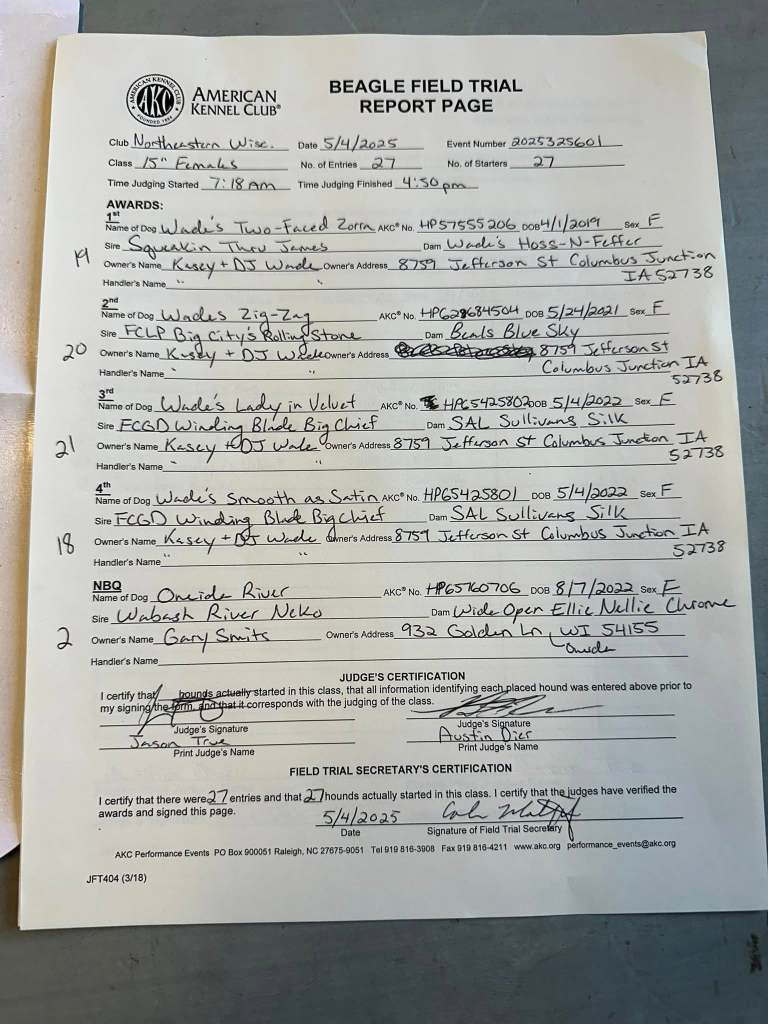 AMERICAN KENNEL CLUB
AKC
FOUNDED 1884
AMERICAN
KENNEL CLUB®
BEAGLE FIELD TRIAL
REPORT PAGE
Club Northeastern Wisc. Date 5/4/2025 Event Number 2025325601
Class 15" Females No. of Entries 27 No. of Starters 27
Time Judging Started 7:18 Am Time Judging Finished 4:50 pm
AWARDS:
1st
Name of Dog Wade's Two-Faced Zorra AKC® No. HP57555206 DOB 4/1/2019 Sex F
Sire Squeakin Thru James Dam Wade's Hoss-N-Feffer
19 Owner's Name Kasey + DJ Wade Owner's Address 8759 Jefferson St Columbus Junction
IA 52738
Handler's Name " "
2nd
Name of Dog Wades Zig-Zag AKC® No. HP628684504 DOB 5/24/2021 Sex F
Sire FCLP Big City's Rolling Stone Dam Beals Blue Sky
20 Owner's Name Kasey + DJ Wade Owner's Address 8759 Jefferson St
Columbus Junction IA
Handler's Name " "
52738
3rd
Name of Dog Wade's Lady in Velvet AKC® No. HP65425802 DOB 5/4/2022 Sex F
Sire FCGD Winding Blade Big Chief Dam SAL Sullivans Silk
21 Owner's Name Kasey + DJ Wade Owner's Address 8759 Jefferson St Columbus Junction IA
52738
Handler's Name " "
4th
Name of Dog Wade's Smooth as Satin AKC® No. HP65425801 DOB 5/4/2022 Sex F
Sire FCGD Winding Blade Big Chief Dam SAL Sullivans Silk
18 Owner's Name Kasey + DJ Wade Owner's Address 8759 Jefferson St Columbus Junction IA
52738
Handler's Name " "
NBQ
Name of Dog Oneida River AKC® No. HP65760706 DOB 8/7/2022 Sex F
Sire Wabash River Neko Dam Wide Open Ellie Nellie Chrome
2 Owner's Name Gary Smits Owner's Address 932 Golden Ln, WI 54155
Oneida
Handler's Name
JUDGE'S CERTIFICATION
I certify that hounds actually started in this class, that all information identifying each placed hound was entered above prior to
my signing the form, and that it corresponds with the judging of the class.
Judge's Signature Judge's Signature
Jason True Austin Dier
Print Judge's Name Print Judge's Name
FIELD TRIAL SECRETARY'S CERTIFICATION
I certify that there were 27 entries and that 27 hounds actually started in this class. I certify that the judges have verified the
awards and signed this page.
5/4/2025
Date Signature of Field Trial Secretary
AKC Performance Events PO Box 900051 Raleigh, NC 27675-9051 Tel 919 816-3908 Fax 919 816-4211 www.akc.org performance_events@akc.org
JFT404 (3/18)